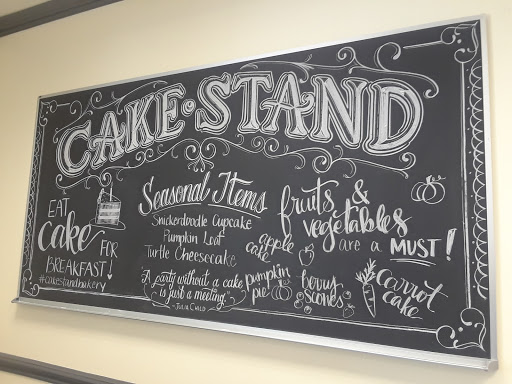 CAKE • STAND
EAT
cake
FOR
BREAKFAST!
#cakestandbakery
Seasonal Items
Snickerdoodle Cupcake
Pumpkin Loaf
Turtle Cheesecake
"A party without a cake
is just a meeting."
-JULIA CHILD
fruits &
vegetables
ARE A MUST!
apple
cake
pumpkin
pie
berry
scones
carrot
cake